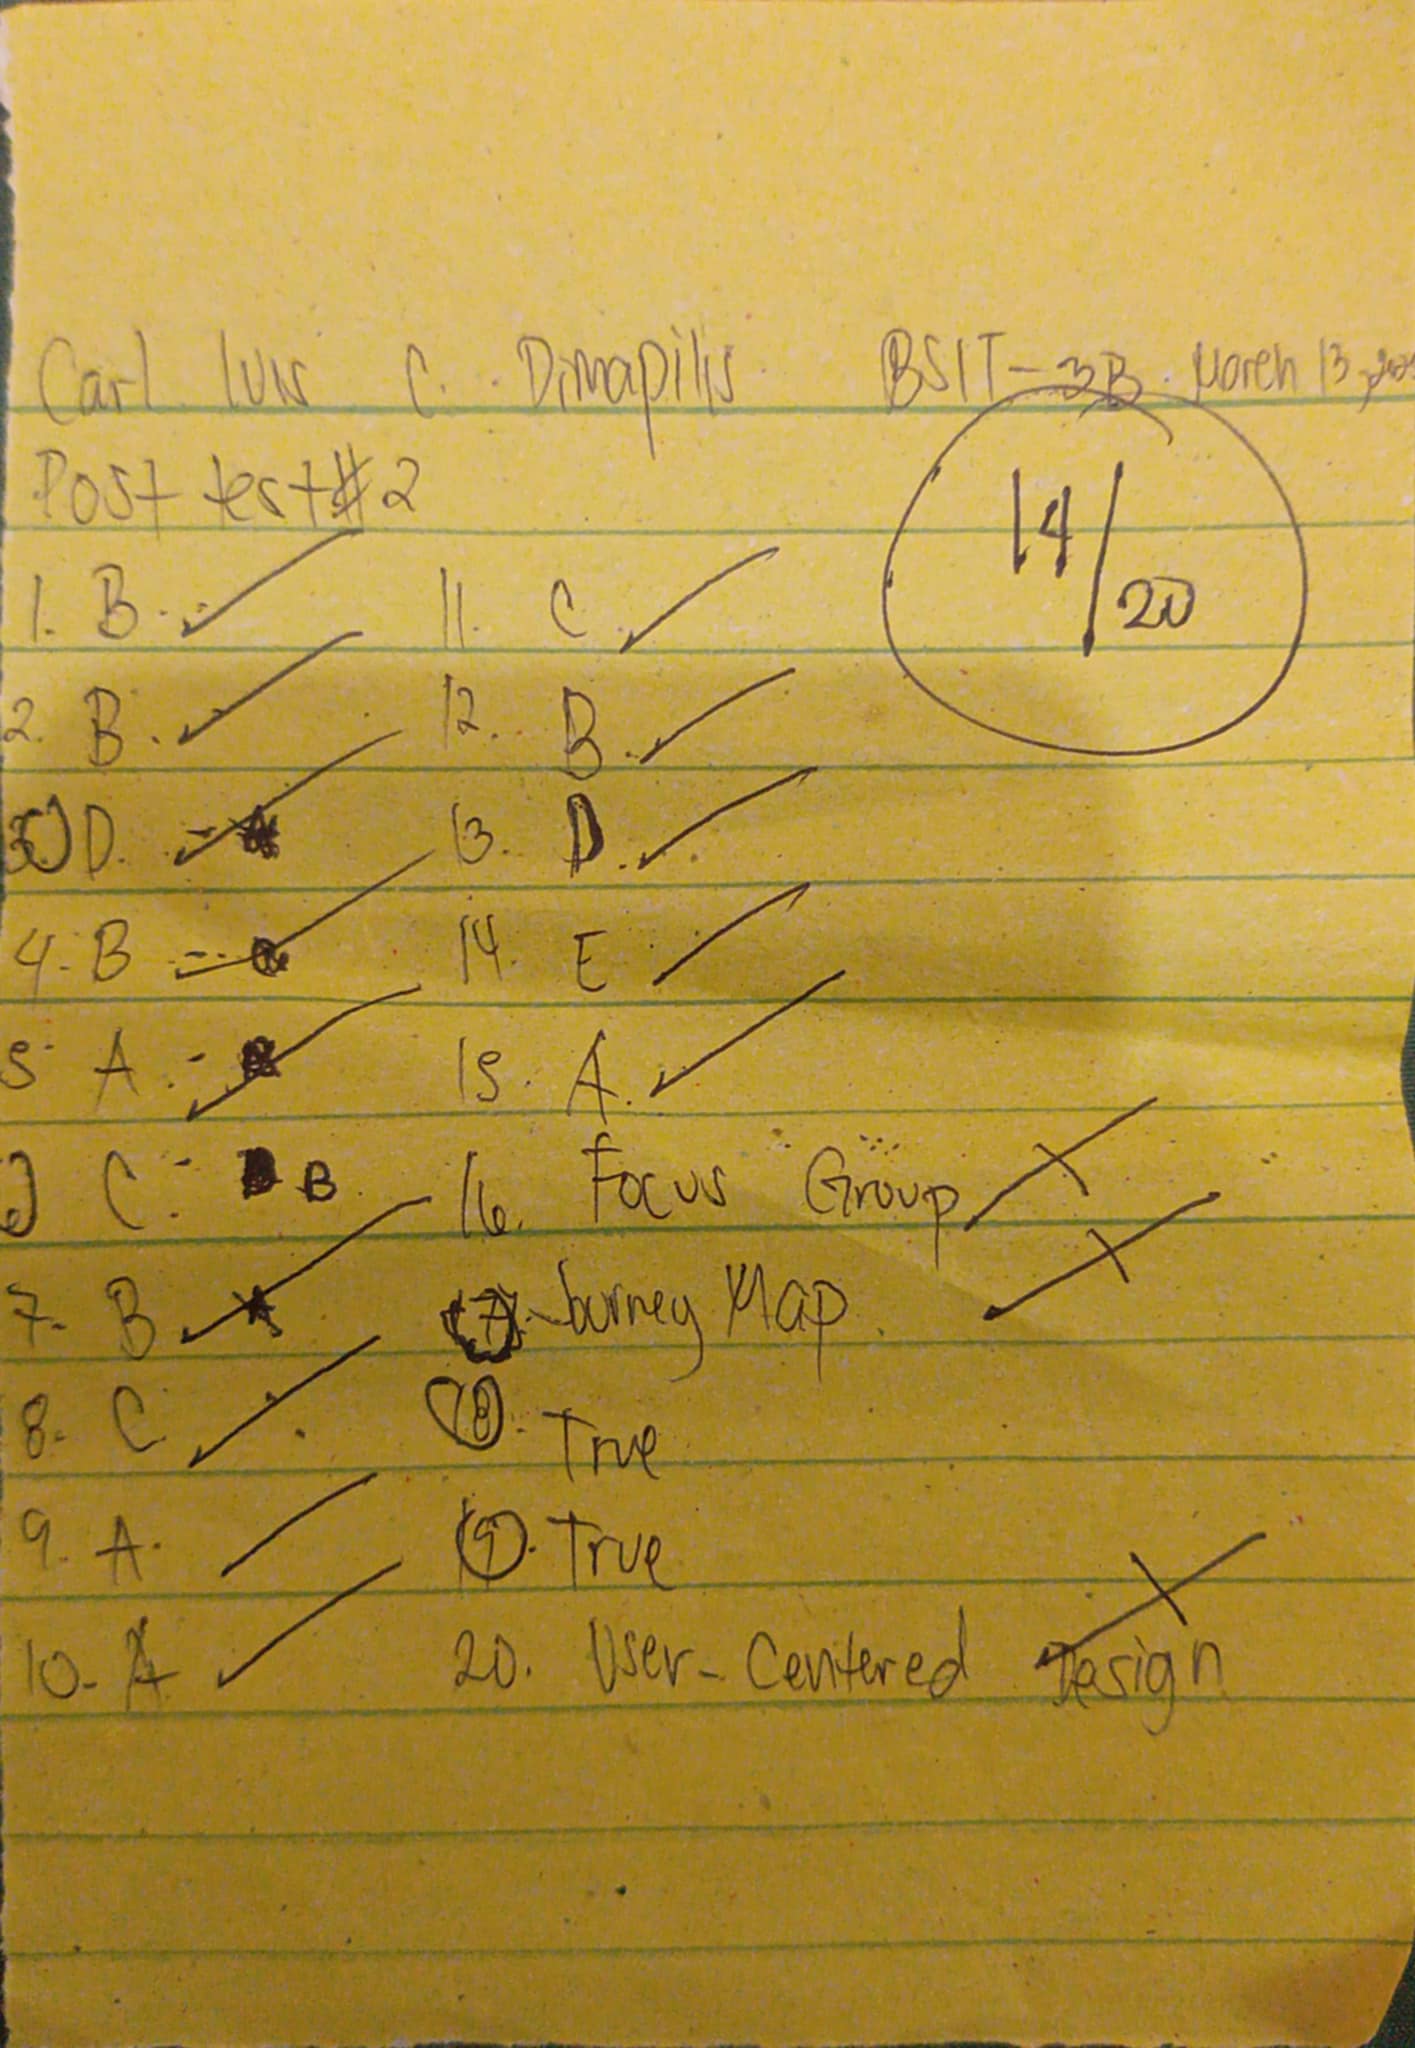 Carl Luis C. Dimapilis BSIT-3B March 13,
Post test #2
14/20
1. B.
2. B.
3. D.
4. B
5. A.
6 C. B
7. B
8. C
9. A.
10. A
11. C.
12. B.
13. D.
14. E
15. A.
16. Focus Group
17. Journey Map.
18. True
19. True
20. User-Centered Design